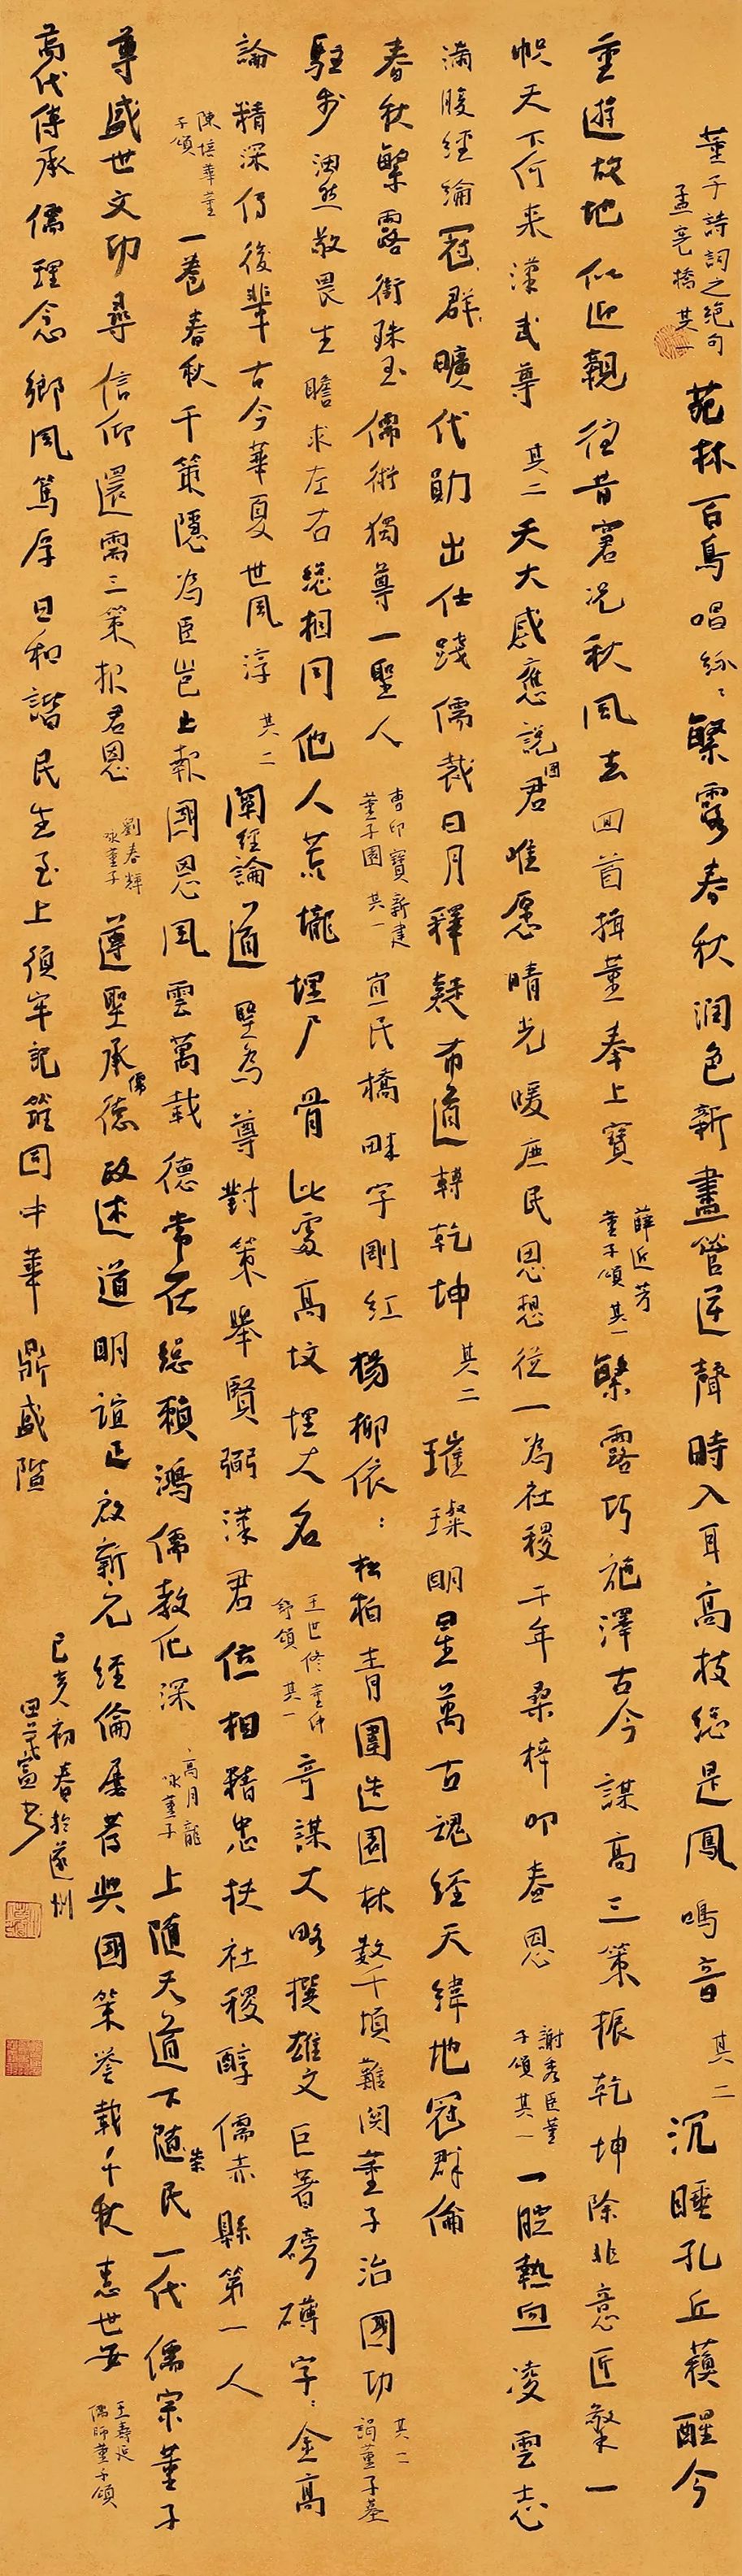 董子詩詞之絕句
孟宪橋 其一
苑林百鳥唱紛紛繁露春秋润色新盡管逆聲時入耳高技總是鳳鳴音 其二 沉睡孔丘蘋醒今
重遊故地似迎親往昔窘况秋風去回首揖董奉上寶 薛近芳董子頌其一 繁露巧施澤古今謀高三策振乾坤除非意匠擎一
幟天下何来漢武尊 其二 天大感應說君唯愿晴光暖庶民思想從一為社稷千年桑梓叩春恩 謝秀臣董子頌其一 一腔熱血凌雲志
滿腹經綸冠群曠代勛出仕踐儒裁日月釋疑布道轉乾坤 其二 璀璨明星萬古魂經天緯地冠群倫
春秋繁露銜珠玉儒術獨尊一聖人 曹印寶新建董子園其一 宜民橋畔字剛紅楊柳依依松柏青圍造園林數千頃難闵董子治國功 其二 謁董子墓
駐步洄然敬畏生瞻求左右總相同他人荒壠埋尸骨此處高坟埋大名 王世修董仲舒頌其一 奇謀大略撰雄文巨著磅礡字字金高
論精深传後輩古今華夏世風淳 其二 闡經論道聖為尊對策舉賢弼漢君位相精忠扶社稷醇儒赤縣第一人
陳培華董子頌 一卷春秋千策隱為臣豈止報國恩風雲萬載德常在總賴鴻儒教化深 高月龍咏董子 上随天道下随民一代儒宗董子
尊盛世文功尋信仰還需三策报君恩 劉春輝咏董子 遵聖承儒德政述道明誼已啟新元經倫屬著興國策荃載千秋惠世安 王壽延儒師董子頌
萬代傳承儒理念鄉風篤厚日和諧民生至上須牢記雒固中華鼎盛階
己亥初春於遂州
田崇富书